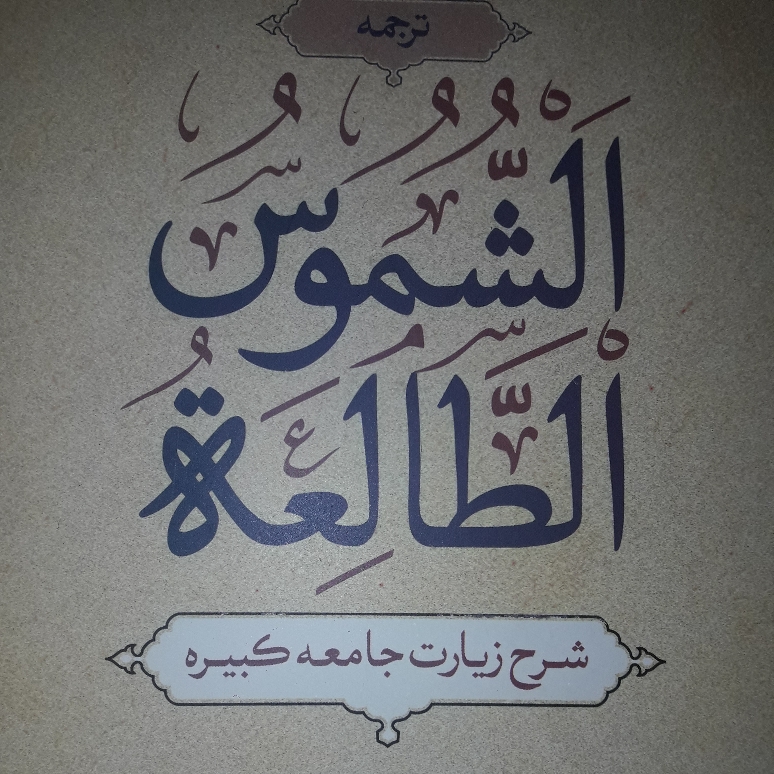 ترجمه
اَلْشُّمُوسُ
اَلْطَّالِعَةُ
شرح زیارت جامعه کبیره